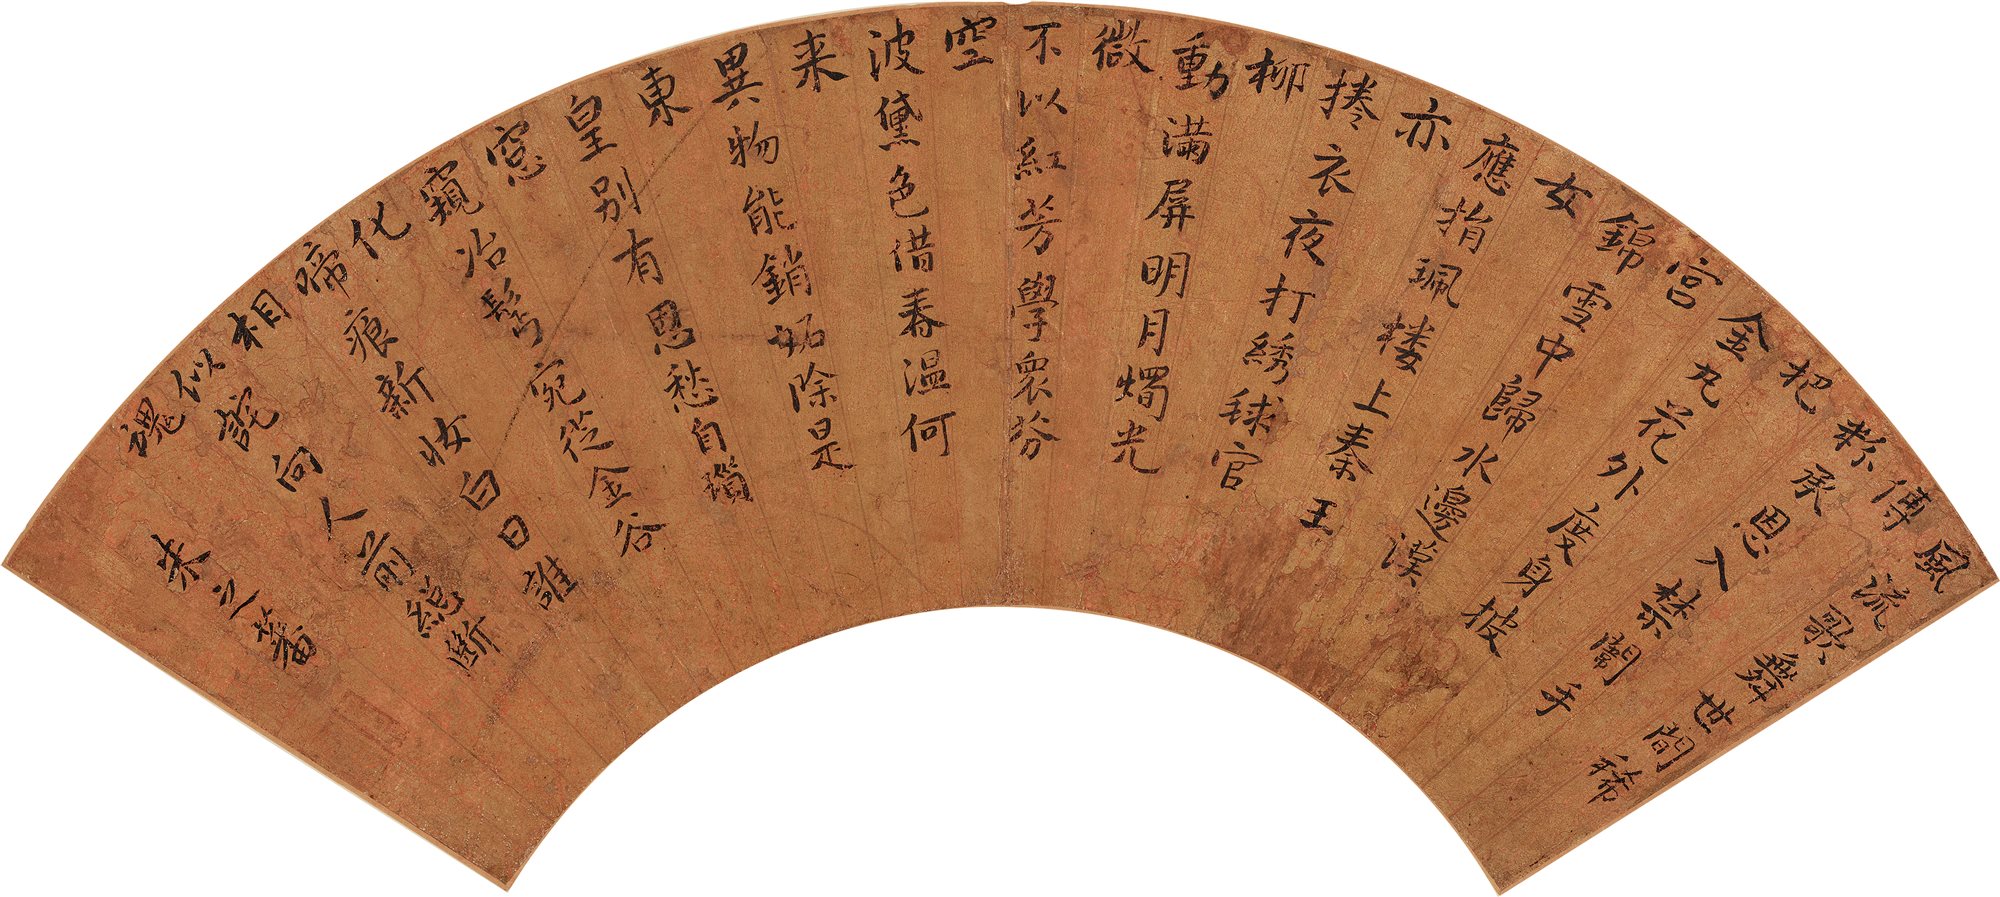 風流歌舞世間稀
傅
粉承恩入禁闈手
把
金丸花外度身披
宮
錦雪中歸水邊漢
女
應指珮楼上秦王
亦
捲衣夜打綉毬官
柳
動滿屏明月燭光
微
不以紅芳學衆芬
空
波黛色借春温何
来
異物能銷妬除是
東
皇別有恩愁自瑣
窓
窺冶髩宛從金谷
化
啼痕新妝白日誰
相
似詫向人前總斷
魂
朱之蕃